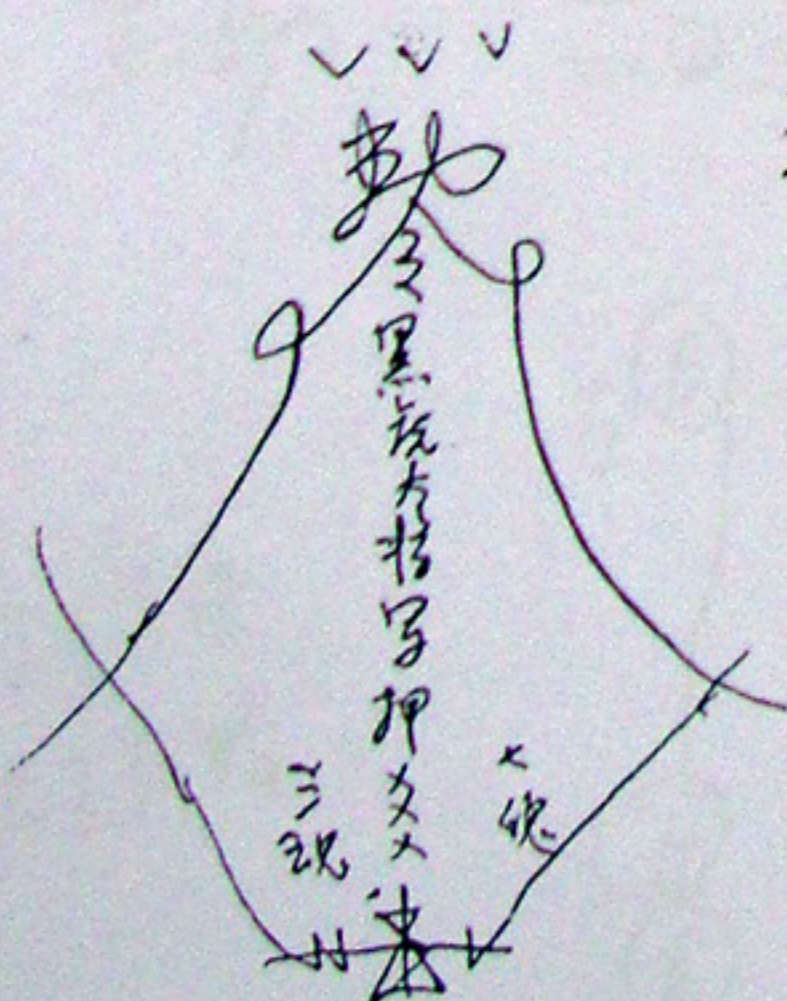 勅令黑虎大将军押×××
三魂
七魄